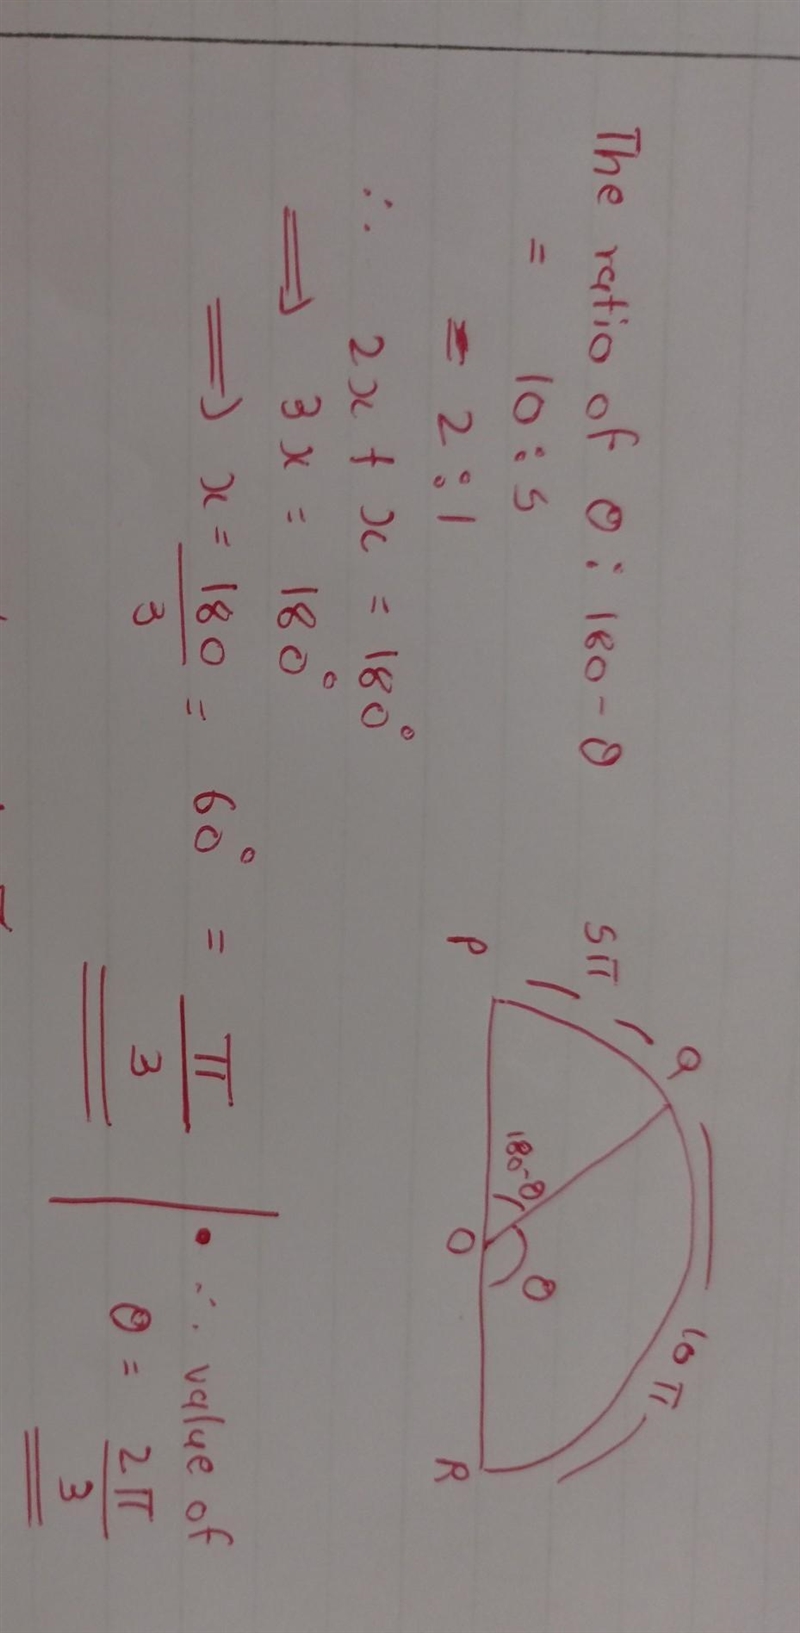 The ratio of θ : 180 - θ
= 10 : 5
= 2 : 1
∴ 2x + x = 180°
⟹ 3x = 180°
⟹ x = 180/3 = 60° = π/3
P
5π
Q
10π
180-θ
θ
O
R
• ∴ value of
θ = 2π/3